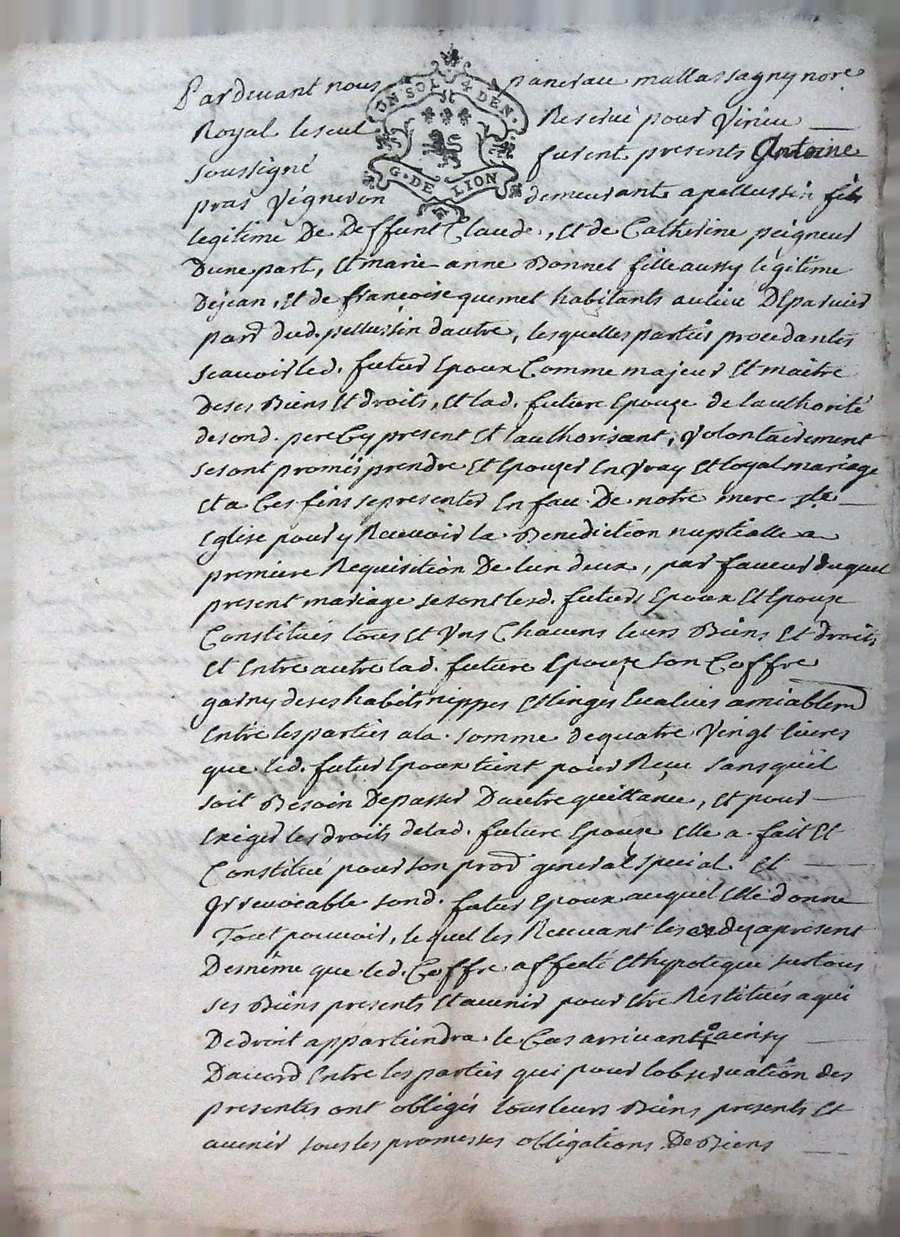 Pardevant nous pancrace mallassagny nore
UN SOL 4 DEN.
Royal le seul Reservé pour Virieu
soussigné furent presents Antoine
G. DE LION
pras Vigneron demeurant a pellussin fils
legitime De Deffunt Claude, Et de Catherine peigneur
Dune part, Et marie anne Bonnel fille aussy legitime
De jean, Et de francoise quemet habitants au lieu
parr dud. pellussin dautre, lesquelles parties procedantes
scavoir led. futur Epoux Comme majeur Et maitre
De ses Biens Et droits, Et lad. future Epouze de lauthorité
de sond. pere Cy present Et lauthorisant, Volontairement
se sont promis prendre Et Epouzer En Vray Et loyal mariage
Et a Ces fins se presenter En face De notre mere ste
Eglise pour y Recevoir la Benediction nuptialle a
premiere Requisition De lun deux, par faveur duquel
present mariage se sont lesd. futurs Epoux Et Epouze
Constitués tous Et Uns Chacuns leurs Biens Et droits
Et Entre autre lad. future Epouze son Coffre
garny de ses habits nippes Et linges Evalués amiablem
Entre les parties a la somme de quatre Vingt livres
que led. futur Epoux tient pour Recu sans quil
soit Besoin De passer Dautre quittance, Et pour
Exiger les droits de lad. future Epouze Elle a fait Et
Constitué pour son prod general special Et
Irrevocable sond. futur Epoux auquel Elle donne
Tout pouvoir, lequel les Recevant les a des a present
De meme que led. Coffre affecté Et hypotequé sur tous
ses Biens presents Et avenir pour Etre Restitués a qui
De droit appartiendra le Cas arrivant ainsy
Daccord Entre les parties qui pour lobservation des
presentes ont obligés tous leurs Biens presents Et
avenir sous les promesses obligations De Biens